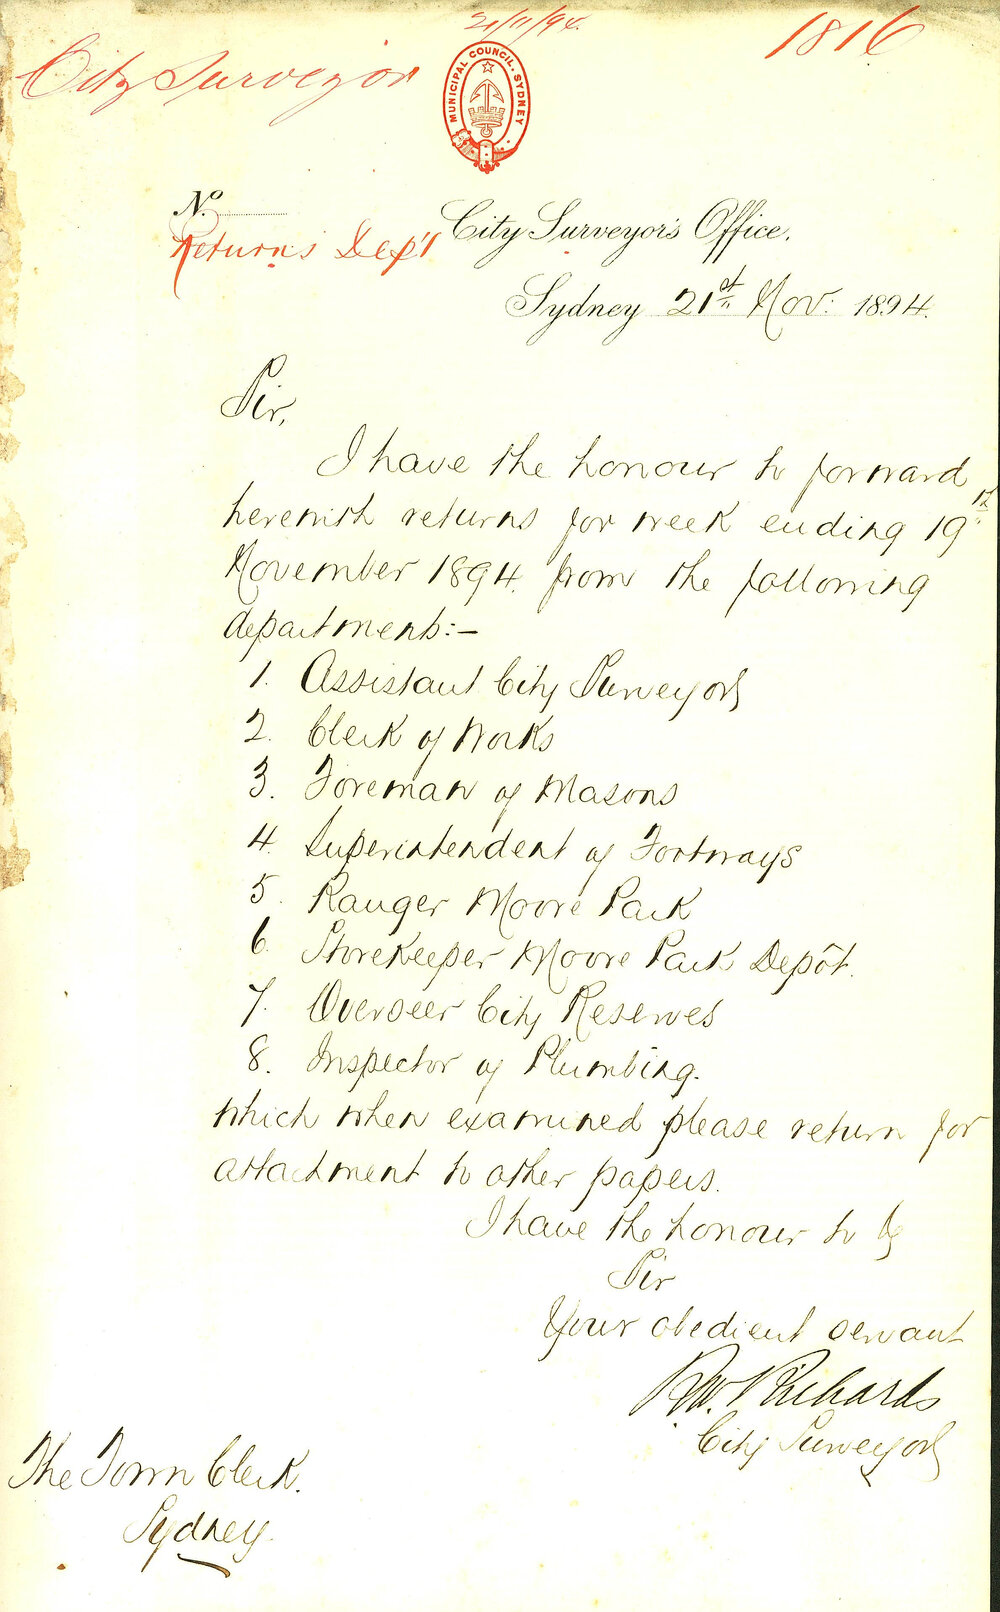 21/11/94.
1816
City Surveyor
MUNICIPAL COUNCIL, SYDNEY
No.
Returns Dep't
City Surveyor's Office.
Sydney 21st Nov: 1894.
Sir,
I have the honour to forward
herewith returns for week ending 19th
November 1894. from the following
departments:-
1. Assistant City Surveyor
2. Clerk of Works
3. Foreman of Masons
4. Superintendent of Footways
5. Ranger Moore Park
6. Storekeeper Moore Park Depôt.
7. Overseer City Reserves
8. Inspector of Plumbing.
which when examined please return for
attachment to other papers.
I have the honour to be
Sir
Your obedient servant
R.W. Richards
City Surveyor
The Town Clerk.
Sydney.